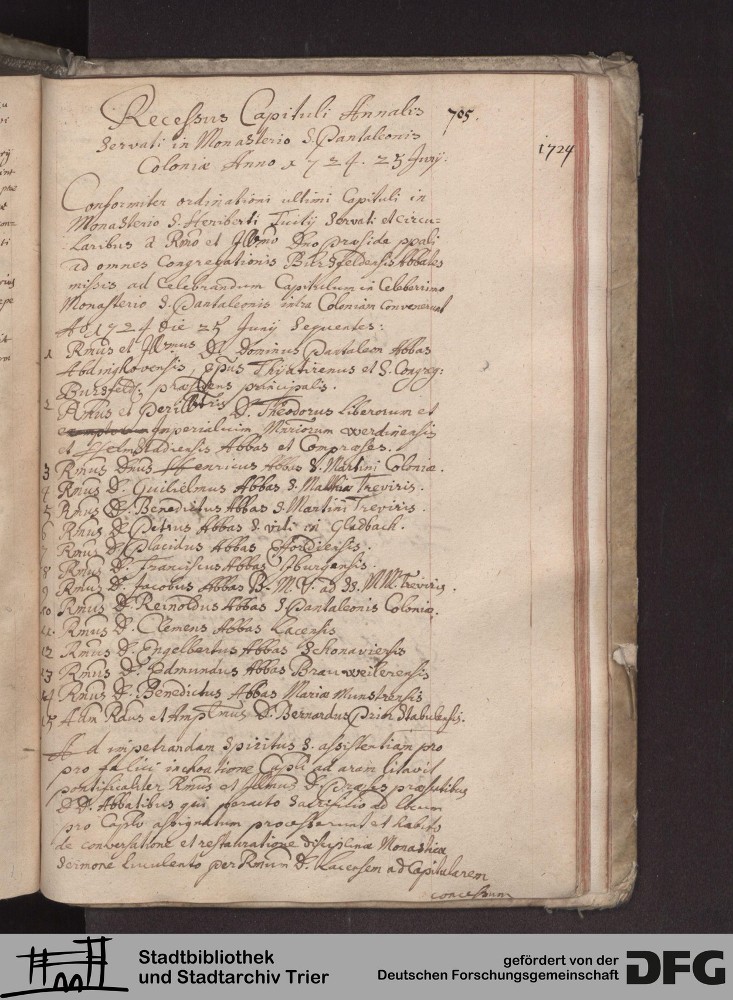 Recessus Capituli Annalis 705.
Servati in Monasterio S. Pantaleonis
Coloniæ Anno 1724. 25 Junij.
1724
Conformiter ordinationi ultimi Capituli in
Monasterio S. Heriberti Tuitij Servati et circu=
laribus a Rmo et Illmo Dno præside ppali
ad omnes Congregationis Bursfeldensis Abbates
missis ad Celebrandum Capitulum in Celeberrimo
Monasterio S. Pantaleonis intra Coloniam convenerunt
Ao 1724 die 25 Junij Sequentes:
1 Rmus et Illmus D. Dominus Pantaleon Abbas
Abdinghovensis, Epus Thijatirenus et S. Congreg:
Bursfeld: præsidens principalis.
2 Rmus et Perillustris D. Theodorus Liberorum et
Imperialium Werdinensis
et Helmstadiensis Abbas et Compræses.
3 Rmus Dnus Henricus Abbas S. Martini Coloniæ.
4 Rmus D. Guilielmus Abbas S. Mathiæ Treviris.
5 Rmus D. Benedictus Abbas S. Martini Treviris.
6 Rmus D. Petrus Abbas S. Viti in Gladbach.
7 Rmus D. Placidus Abbas
8 Rmus D. Franciscus Abbas Iburgensis.
9 Rmus D. Jacobus Abbas B. M. V. ad SS. MM. Treviris.
10 Rmus D. Reinoldus Abbas S Pantaleonis Coloniæ.
11. Rmus D. Clemens Abbas Lacensis
12 Rmus D. Engelbertus Abbas Schonaviensis
13 Rmus D. Edmundus Abbas Brauweilerensis
14 Rmus D. Benedictus Abbas Mariæ Munstrensis
15 Adm Rdus et Amplmus D. Bernardus Prior Stabulensis.
Ad impetrandam Spiritus S. assistentiam pro
pro felici inchoatione Capli ad aram litavit
pontificaliter Rmus et Illmus D. Præses præsentibus
D.D. Abbatibus qui peracto Sacrificio ad locum
pro Caplo assignatum processerunt et habito
de conversatione et restauratione disciplinæ Monasticæ
Sermone luculento per Rmum D. Lacensem ad Capitularem
concessum
Stadtbibliothek
und Stadtarchiv Trier
gefördert von der
Deutschen Forschungsgemeinschaft
DFG